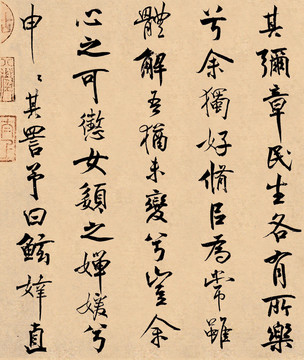 其彌章民生各有所樂
兮余獨好脩以為常雖
體解吾猶未變兮豈余
心之可懲女頦之嬋媛兮
申〻其詈予曰鮌婞直